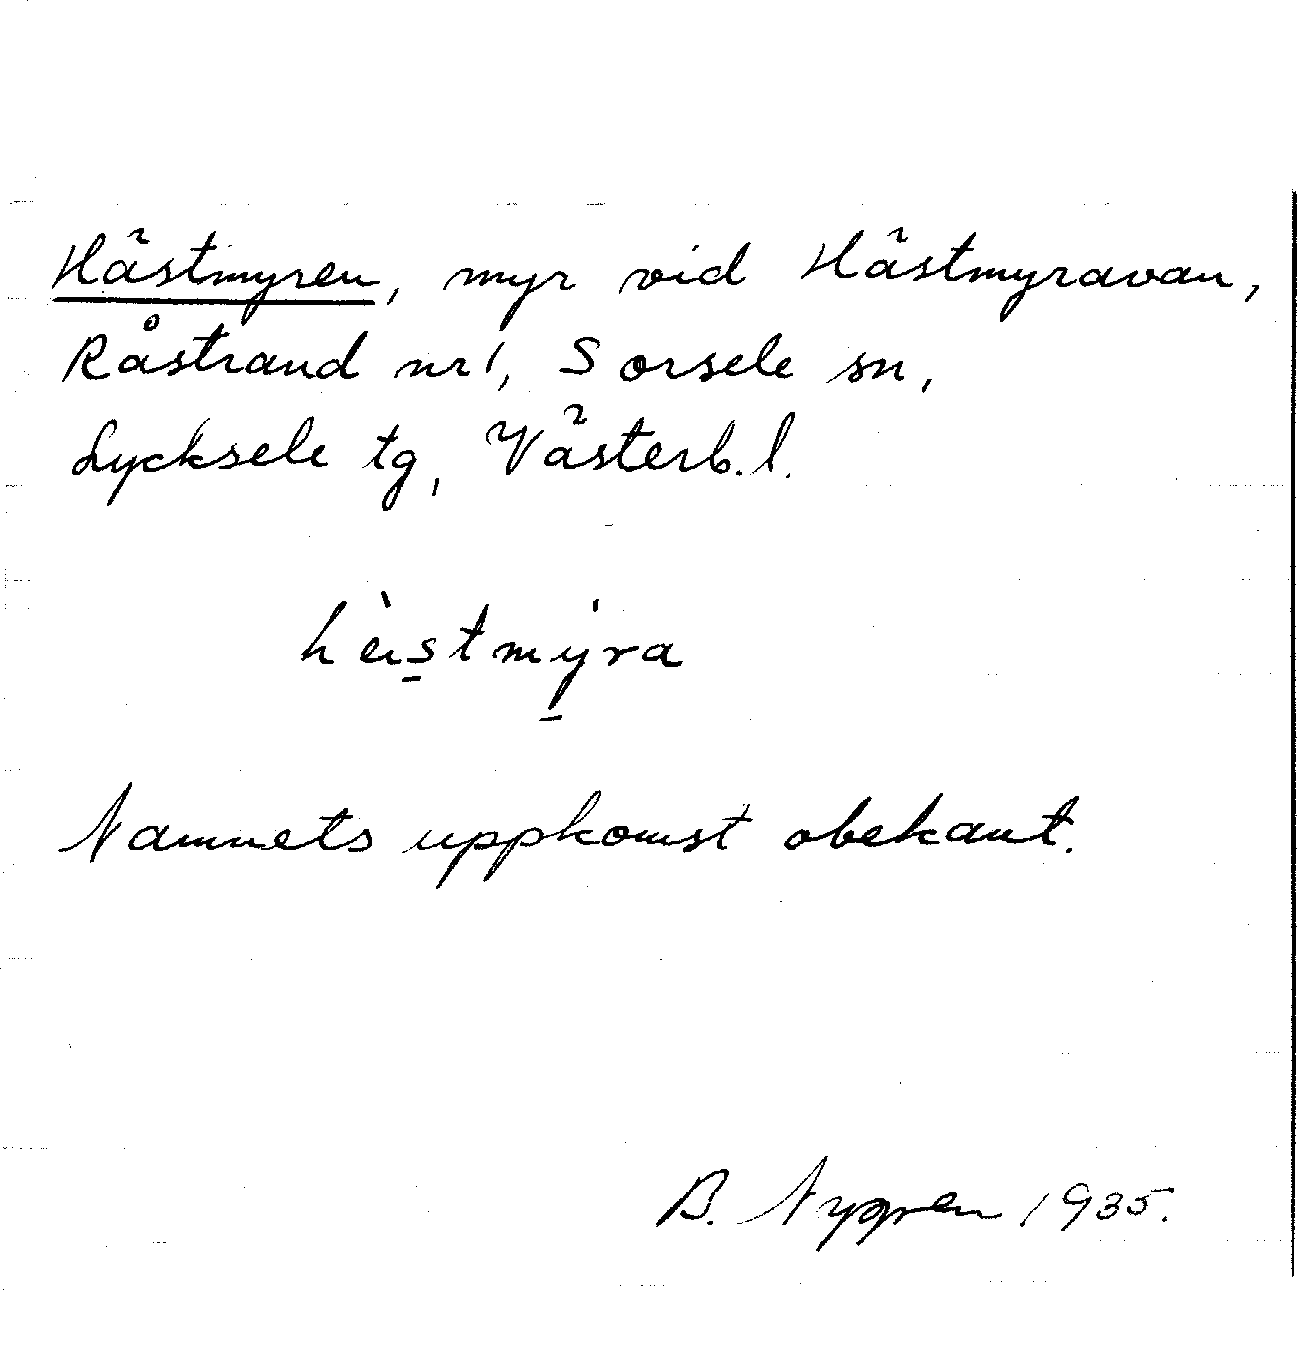 Hästmyren, myr vid Hästmyravan,
Råstrand nr 1, Sorsele sn,
Lycksele tg, Västerb. l.
hèistmýra
Namnets uppkomst obekant.
B. Nygren 1935.